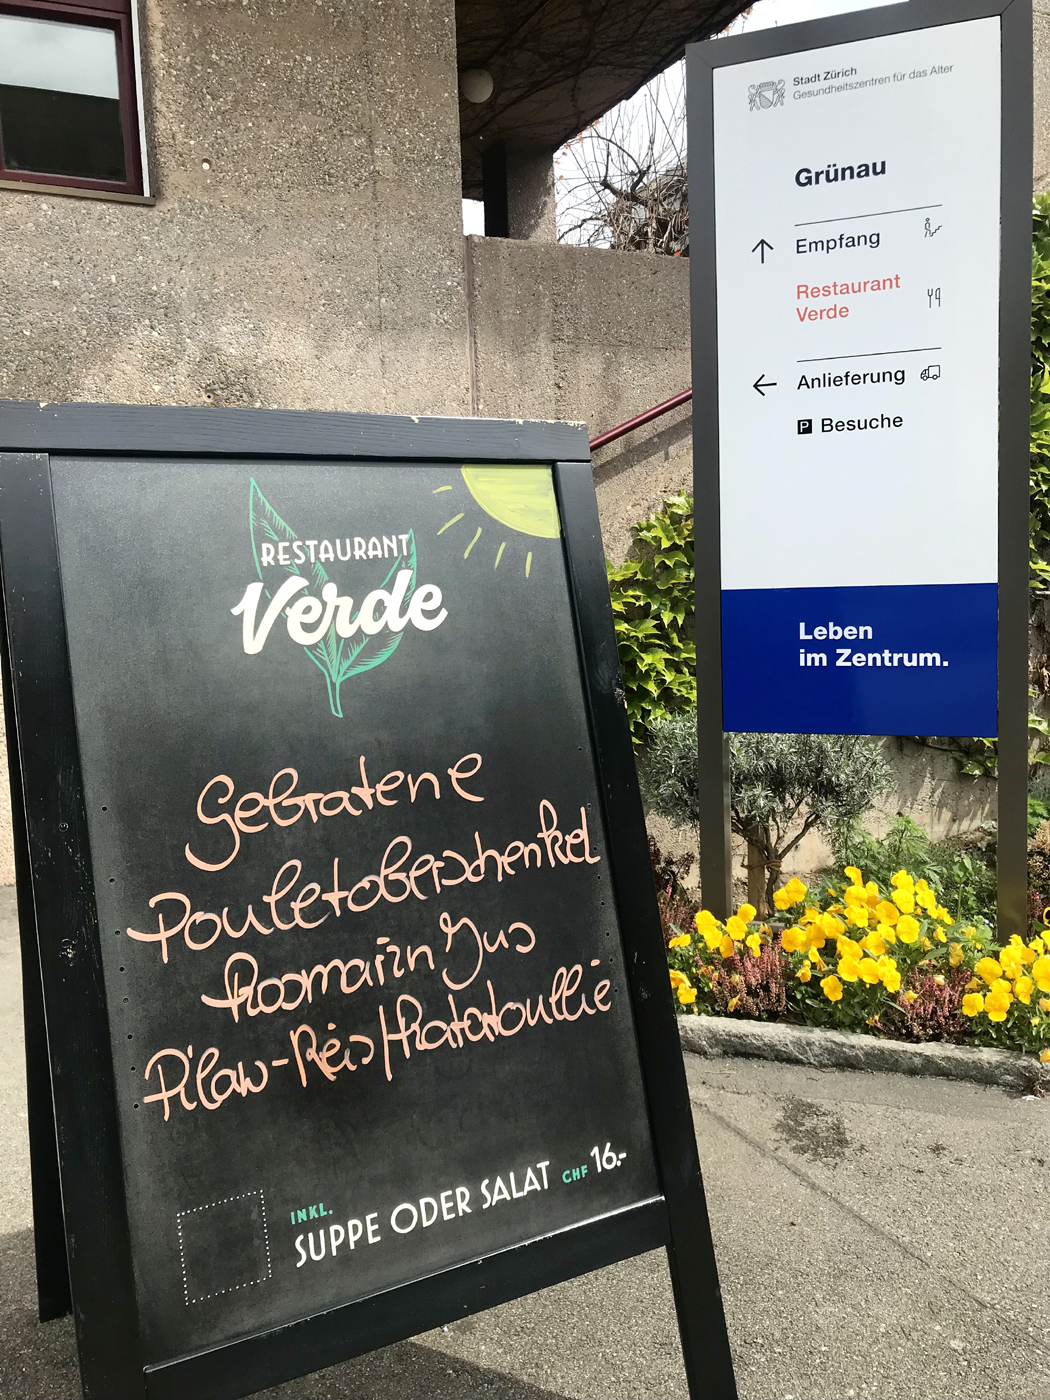 Stadt Zürich
Gesundheitszentren für das Alter
Grünau
Empfang
Restaurant
Verde
Anlieferung
P Besuche
Leben
im Zentrum.
RESTAURANT
Verde
Gebratene
Pouletoberschenkel
Rosmarin Jus
Pilaw-Reis/Ratatouille
INKL.
SUPPE ODER SALAT CHF 16.-